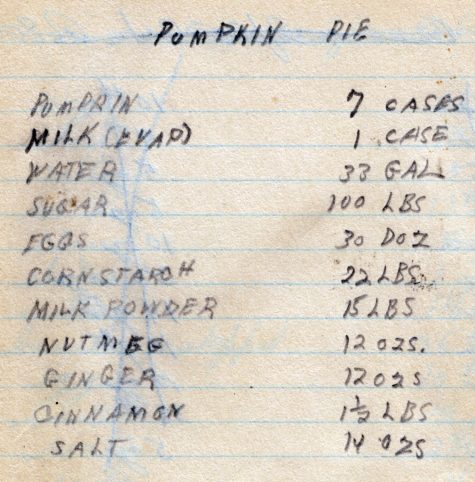 PUMPKIN PIE
PUMPKIN 7 CASES
MILK (EVAP) 1 CASE
WATER 33 GAL
SUGAR 100 LBS
EGGS 30 DOZ
CORNSTARCH 22 LBS
MILK POWDER 15 LBS
NUTMEG 12 OZS.
GINGER 12 OZS
CINNAMON 1½ LBS
SALT 14 OZS